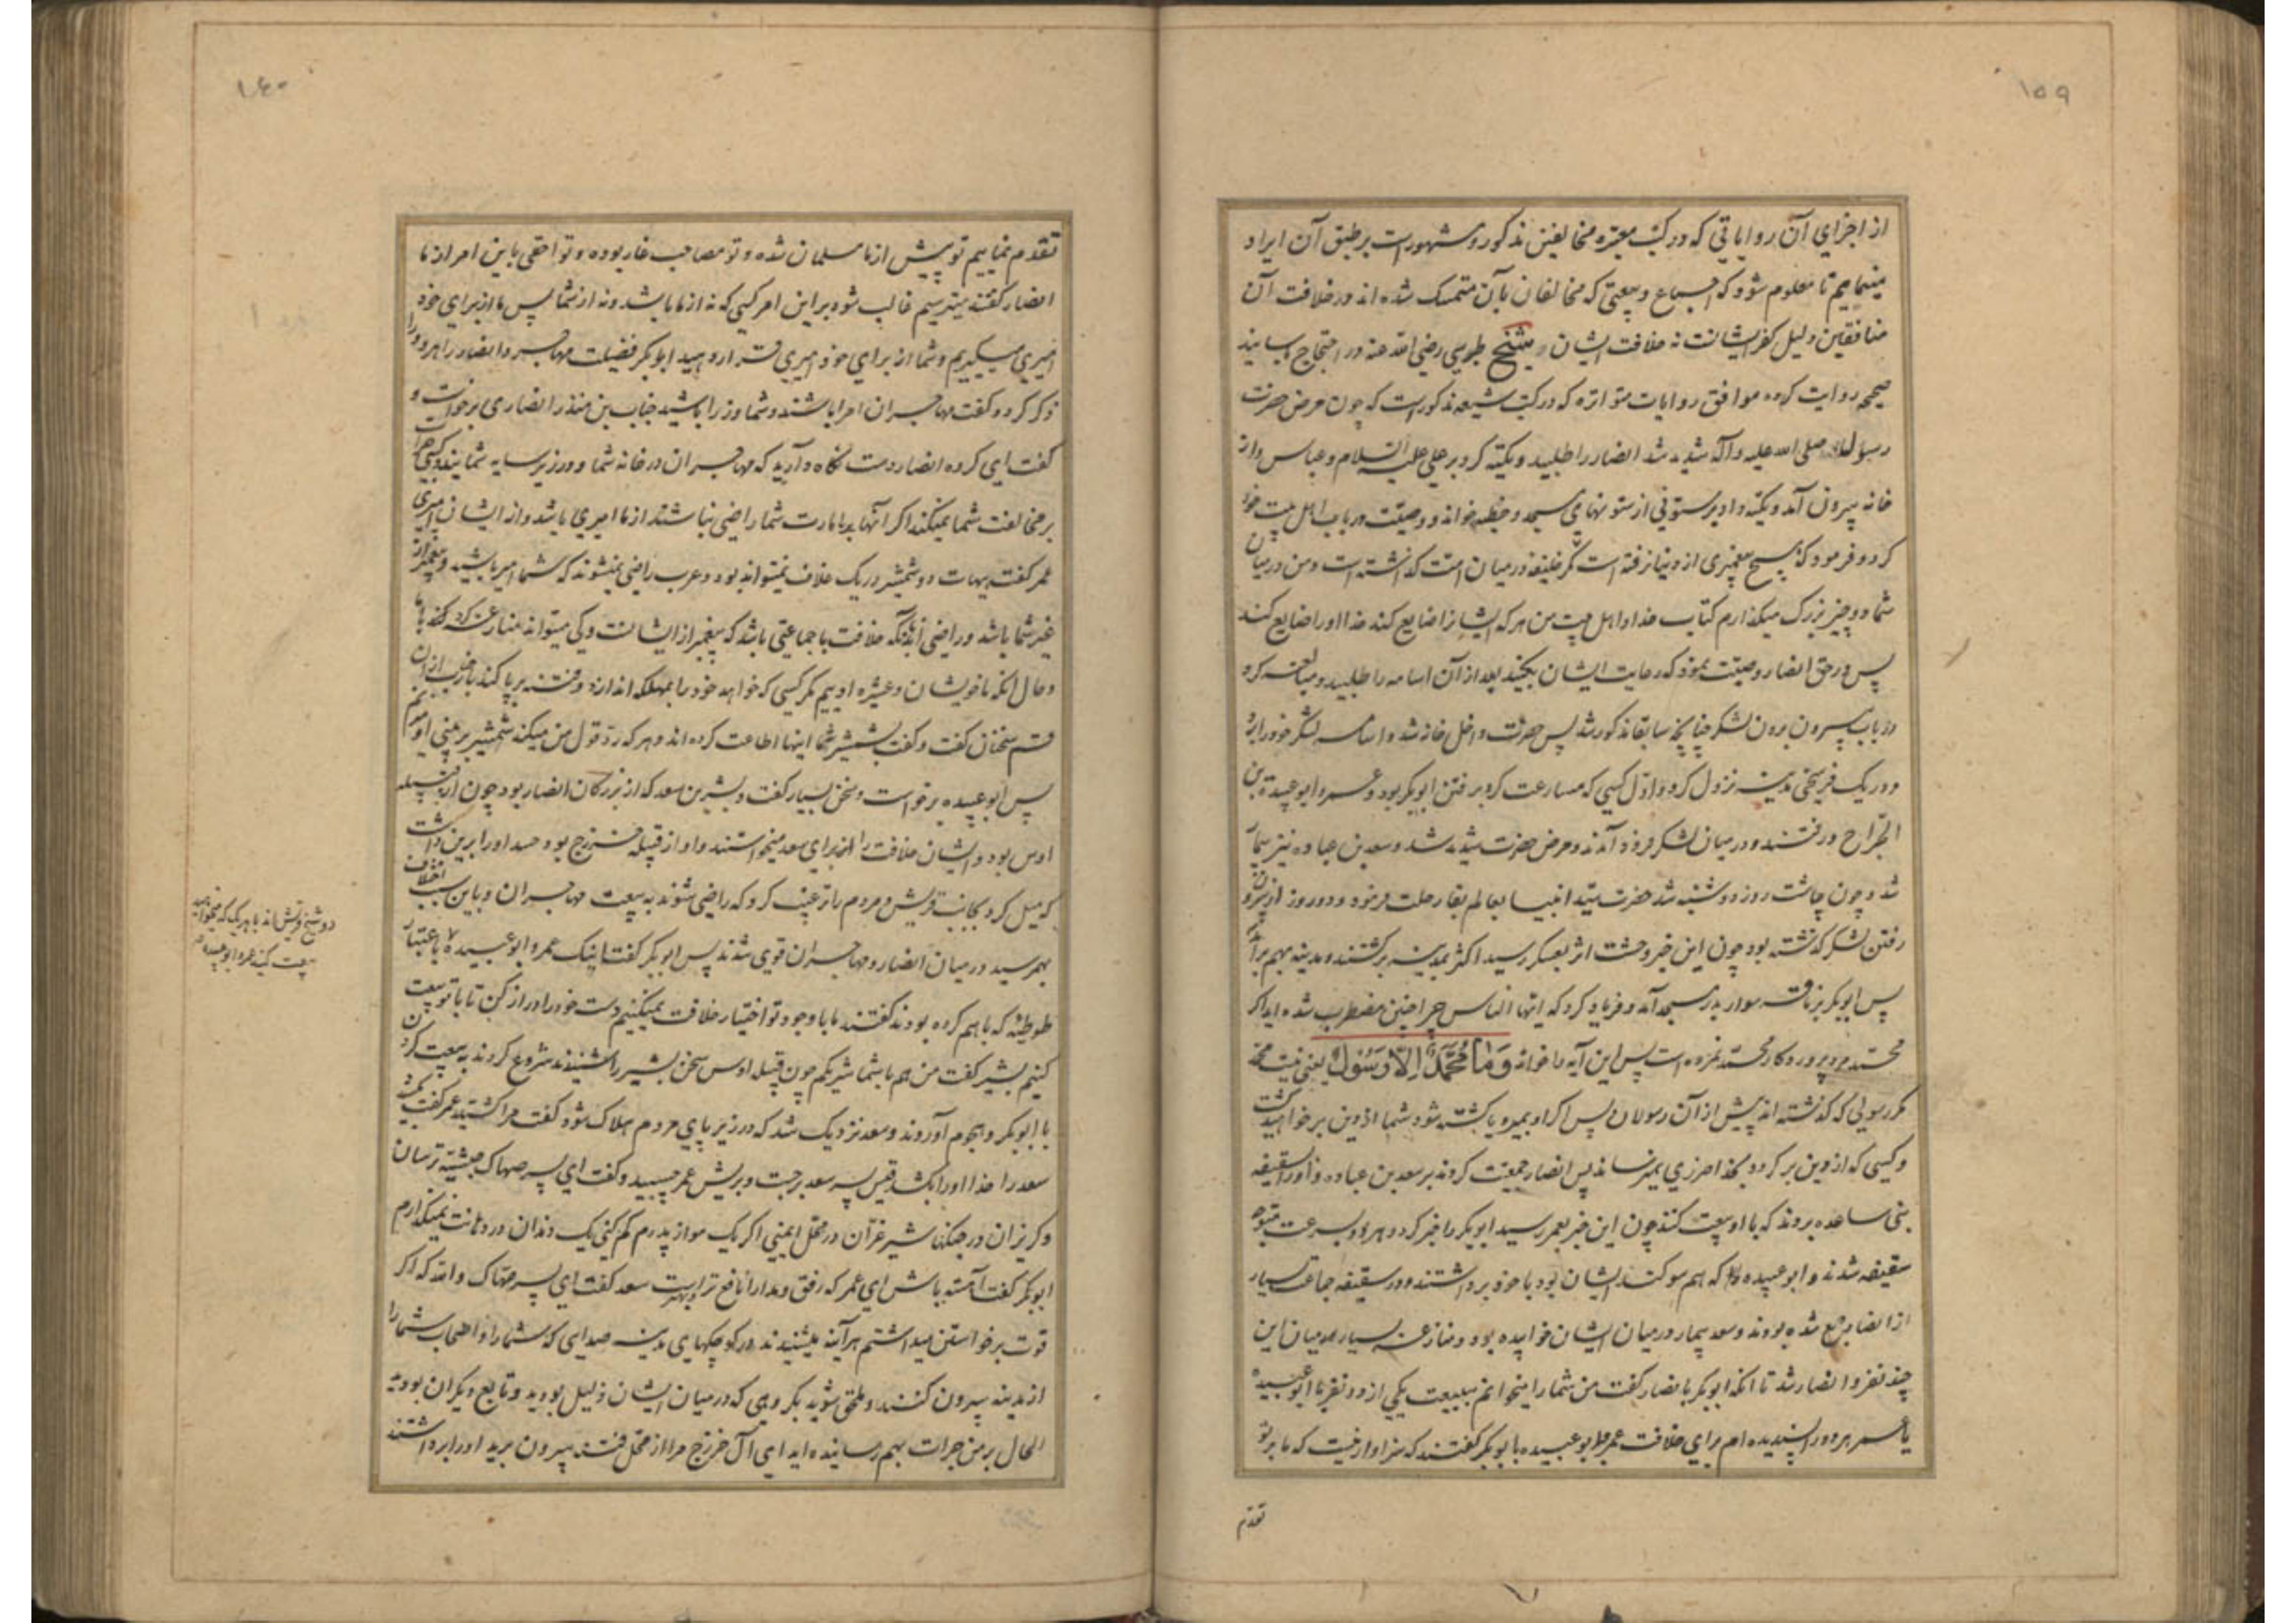 ۱۵۹
از اجزای آن روایاتی که در کتب معتبره مخالفین مذکور و مشهور است بر طبق آن ایراد
مینماییم تا معلوم شود که اجماع و بیعتی که مخالفان بآن متمسک شده اند در خلافت آن
منافقین دلیل کفر ایشانست نه خلافت ایشان شیخ طبرسی رضی الله عنه در احتجاج باسانید
صحیحه روایت کرده موافق روایات متواتره که در کتب شیعه مذکور است که چون مرض حضرت
رسول الله صلی الله علیه وآله شدید شد انصار را طلبید و تکیه کرد بر علی علیه السلام و عباس و از
خانه بیرون آمد و تکیه داد بر ستونی از ستونهای مسجد و خطبه خواند و وصیت در باب اهل بیت خود
کرد و فرمود که هیچ پیغمبری از دنیا نرفته است مگر خلیفه در میان امت گذاشته است و من در میان
شما دو چیز بزرگ میگذارم کتاب خدا و اهل بیت من هر که ایشانرا ضایع کند خدا او را ضایع کند
پس در حق انصار وصیت نمود که رعایت ایشان بکنید بعد از آن اسامه را طلبید و مبالغه کرد
در باب بیرون بردن لشکر چنانچه سابقا مذکور شد پس حضرت داخل خانه شد و اسامه لشکر خود را برد
و در یک فرسخی مدینه نزول کرد و اول کسی که مسارعت کرد بر رفتن ابوبکر بود و عمر و ابو عبیدة بن
الجراح و رفتند و در میان لشکر فرود آمدند و مرض حضرت شدید شد و سعد بن عباده نیز بیمار
شد و چون چاشت روز دوشنبه شد حضرت سید انبیا بعالم بقا رحلت فرمود و دو روز از بیرون
رفتن لشکر گذشته بود چون این خبر وحشت اثر بعسکر رسید اکثر بمدینه برگشتند و مدینه بهم برآمد
پس ابوبکر بر ناقه سوار بدر مسجد آمد و فریاد کرد که ایها الناس چرا چنین مضطرب شده اید اگر
محمد مرد پروردگار محمد نمرده است پس این آیه را خواند وَمَا مُحَمَّدٌ اِلَّا رَسُولٌ یعنی نیست محمد
مگر رسولی که گذشته اند پیش از آن رسولان پس اگر او بمیرد یا کشته شود شما از دین بر خواهید گشت
و کسی که از دین بر گردد بخدا ضرری نمیرساند پس انصار جمعیت کردند بر سعد بن عباده و او را بسقیفه
بنی ساعده بردند که با او بیعت کنند چون این خبر بعمر رسید ابوبکر را خبر کرد و هر دو بسرعت متوجه
سقیفه شدند و ابو عبیده را که هم سوگند ایشان بود با خود برداشتند و در سقیفه جماعت بسیار
از انصار جمع شده بودند و سعد بیمار در میان ایشان خوابیده بود و منازعه بسیار میان این
چند نفر و انصار شد تا آنکه ابوبکر با انصار گفت من شما را میخوانم ببیعت یکی از دو نفر یا ابو عبیده
یا عمر هر دو را پسندیده ام برای خلافت عمر و ابو عبیده با ابوبکر گفتند که سزاوار نیست که ما بر تو
تقدم
۱۶۰
تقدم نماییم تو پیش از ما مسلمان شده و تو مصاحب غار بوده و تو احقی باین امر از ما
انصار گفتند میترسیم غالب شود بر این امر کسی که نه از ما باشد و نه از شما پس ما از برای خود
امیری میگیریم و شما از برای خود امیری قرار دهید ابوبکر فضیلت مهاجر و انصار را هر دو را
ذکر کرد و گفت مهاجران امرا باشند و شما وزرا باشید حباب بن منذر انصاری برخواست و
گفت ای گروه انصار دست نگاه دارید که مهاجران در خانه شما و در زیر سایه شمایند و کسی جرات
بر مخالفت شما نمیکند اگر آنها به امارت شما راضی نباشند از ما امیری باشد و از ایشان امیری
عمر گفت هیهات دو شمشیر در یک غلاف نمیتواند بود و عرب راضی نمیشوند که شما امیر باشید و پیغمبر از
غیر شما باشد و راضی اند بآنکه خلافت با جماعتی باشد که پیغمبر از ایشانست و کی میتواند منازعه کرد با ما
و حال آنکه ما خویشان و عشیره اوییم مگر کسی که خواهد خود را بمهلکه اندازد و فتنه برپا کند باز حباب از این
قسم سخنان گفت و گفت بشمشیر شما اینها اطاعت کرده اند و هر که رد قول من میکند شمشیر بر بینی او میزنم
پس ابو عبیده برخواست و سخن بسیار گفت و بشیر بن سعد که از بزرگان انصار بود چون از قبیله
اوس بود و ایشان خلافت را از برای سعد میخواستند و او از قبیله خزرج بود حسد او را برین داشت
که میل کرد بجانب قریش و مردم را ترغیب کرد که راضی شوند به بیعت مهاجران و باین سبب اختلاف
بهم رسید در میان انصار و مهاجران قوی شدند پس ابوبکر گفت اینک عمر و ابو عبیده باعتبار
طوطئه که باهم کرده بودند گفتند ما با وجود تو اختیار خلافت نمیکنیم دست خود را دراز کن تا با تو بیعت
کنیم بشیر گفت من هم با شما شریکم چون قبیله اوس سخن بشیر را شنیدند شروع کردند به بیعت کردن
با ابوبکر و هجوم آوردند و سعد نزدیک شد که در زیر پای مردم هلاک شود گفت مرا کشتید عمر گفت بکشید
سعد را خدا او را بکشد قیس پسر سعد برجست و بریش عمر چسبید و گفت ای پسر صهاک حبشیه ترسان
و گریزان در جنگها شیر غران در محل ایمنی اگر یک مو از پدرم کم کنی یک دندان در دهانت نمیگذارم
ابوبکر گفت آهسته باش ای عمر که رفق و مدارا نافع تر و بهتر است سعد گفت ای پسر صهاک والله که اگر
قوت برخواستن میداشتم هر آینه میشنیدند در کوچهای مدینه صدایی که شما را و اصحاب شما را
از مدینه بیرون کنند و ملحق شوید بگروهی که در میان ایشان ذلیل بودید و تابع دیگران بودید
الحال بر من جرات بهم رسانیده اید ای آل خزرج مرا از محل فتنه بیرون برید او را برداشتند
دو شیخ قریش اند با هر یک که میخواهید
بیعت کنید عمر و ابو عبیده